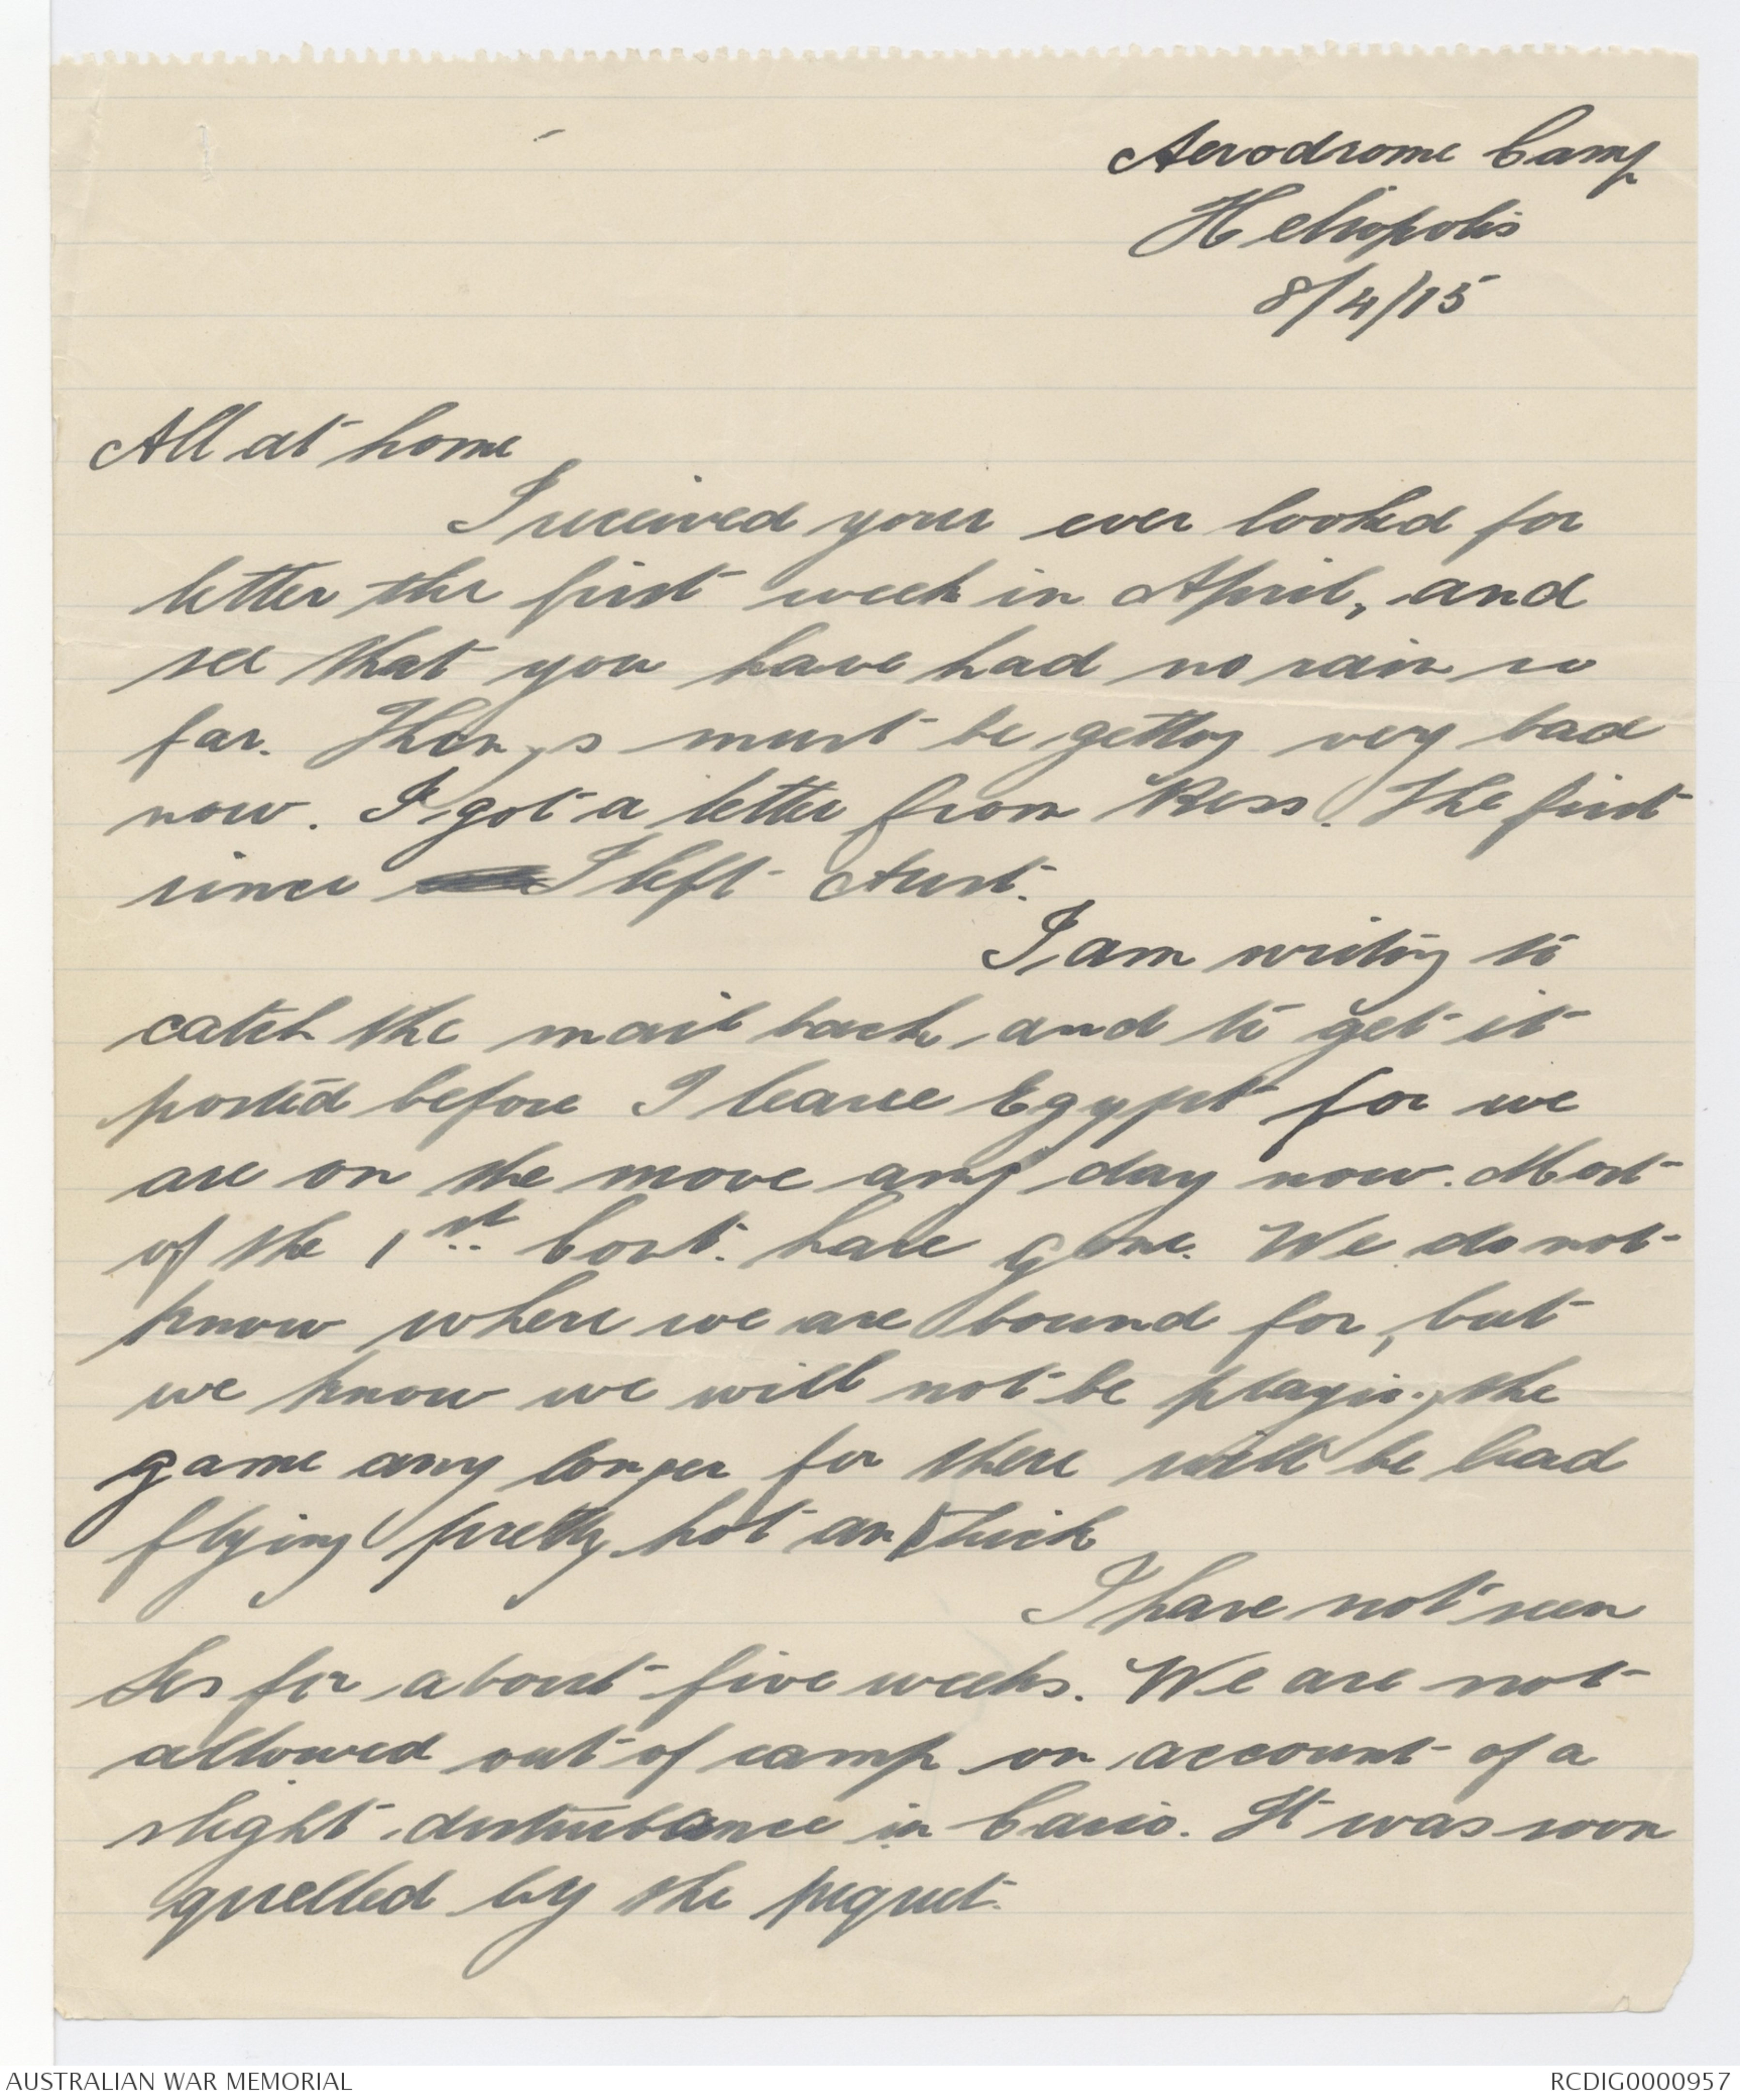 Aerodrome Camp
Heliopolis
8/4/15
All at home
I received your ever looked for
letter the first week in April, and
see that you have had no rain so
far. Things must be getting very bad
now. I got a letter from Ress. The first
since I left Aust.
I am writing to
catch the mail back and to get it
posted before I leave Egypt for we
are on the move any day now. Most
of the 1st. Cont. have gone. We do not
know where we are bound for, but
we know we will not be playing the
game any longer for there will be lead
flying pretty hot an thick
I have not seen
Les for about five weeks. We are not
allowed out of camp on account of a
slight disturbance in Cairo. It was soon
quelled by the piquet.
AUSTRALIAN WAR MEMORIAL
RCDIG0000957